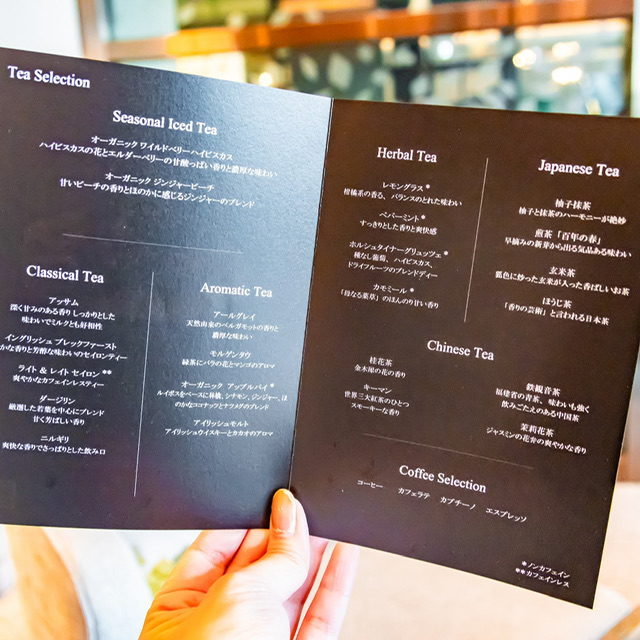 Tea Selection
Seasonal Iced Tea
オーガニック ワイルドベリーハイビスカス
ハイビスカスの花とエルダーベリーの甘酸っぱい香りと濃厚な味わい
オーガニック ジンジャーピーチ
甘いピーチの香りとほのかに感じるジンジャーのブレンド
Classical Tea
アッサム
深く甘みのある香り しっかりとした
味わいでミルクとも好相性
イングリッシュ ブレックファースト
かな香りと芳醇な味わいのセイロンティー
ライト & レイト セイロン **
爽やかなカフェインレスティー
ダージリン
厳選した若葉を中心にブレンド
甘く芳ばしい香り
ニルギリ
爽快な香りでさっぱりとした飲み口
Aromatic Tea
アールグレイ
天然由来のベルガモットの香りと
濃厚な味わい
モルゲンタウ
緑茶にバラの花とマンゴのアロマ
オーガニック アップルパイ *
ルイボスをベースに林檎、シナモン、ジンジャー、ほ
のかなココナッツとナツメグのブレンド
アイリッシュモルト
アイリッシュウイスキーとカカオのアロマ
Herbal Tea
レモングラス *
柑橘系の香る、バランスのとれた味わい
ペパーミント *
すっきりとした香りと爽快感
ホルシュタイナーグリュッツェ *
種なし葡萄、ハイビスカス、
ドライフルーツのブレンドティー
カモミール *
「母なる薬草」のほんのり甘い香り
Japanese Tea
柚子抹茶
柚子と抹茶のハーモニーが絶妙
煎茶「百年の春」
早摘みの新芽から出る気品ある味わい
玄米茶
狐色に炒った玄米が入った香ばしいお茶
ほうじ茶
「香りの芸術」と言われる日本茶
Chinese Tea
桂花茶
金木犀の花の香り
キーマン
世界三大紅茶のひとつ
スモーキーな香り
鉄観音茶
福建省の青茶、味わいも強く
飲みごたえのある中国茶
茉莉花茶
ジャスミンの花弁の爽やかな香り
Coffee Selection
コーヒー カフェラテ カプチーノ エスプレッソ
*ノンカフェイン
**カフェインレス